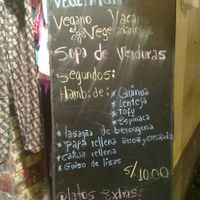 Vegano Vaca
Vegetariano
Sopa de Verduras
Segundos:
Hamb: de: * Quinua
* Lenteja
* Tofu
* Espinaca
* lasagna de berengena
* Papa rellena arroz y ensalada
* Caiwa rellena
* Guiso de lisas
S/.10.00
Platos Extras: